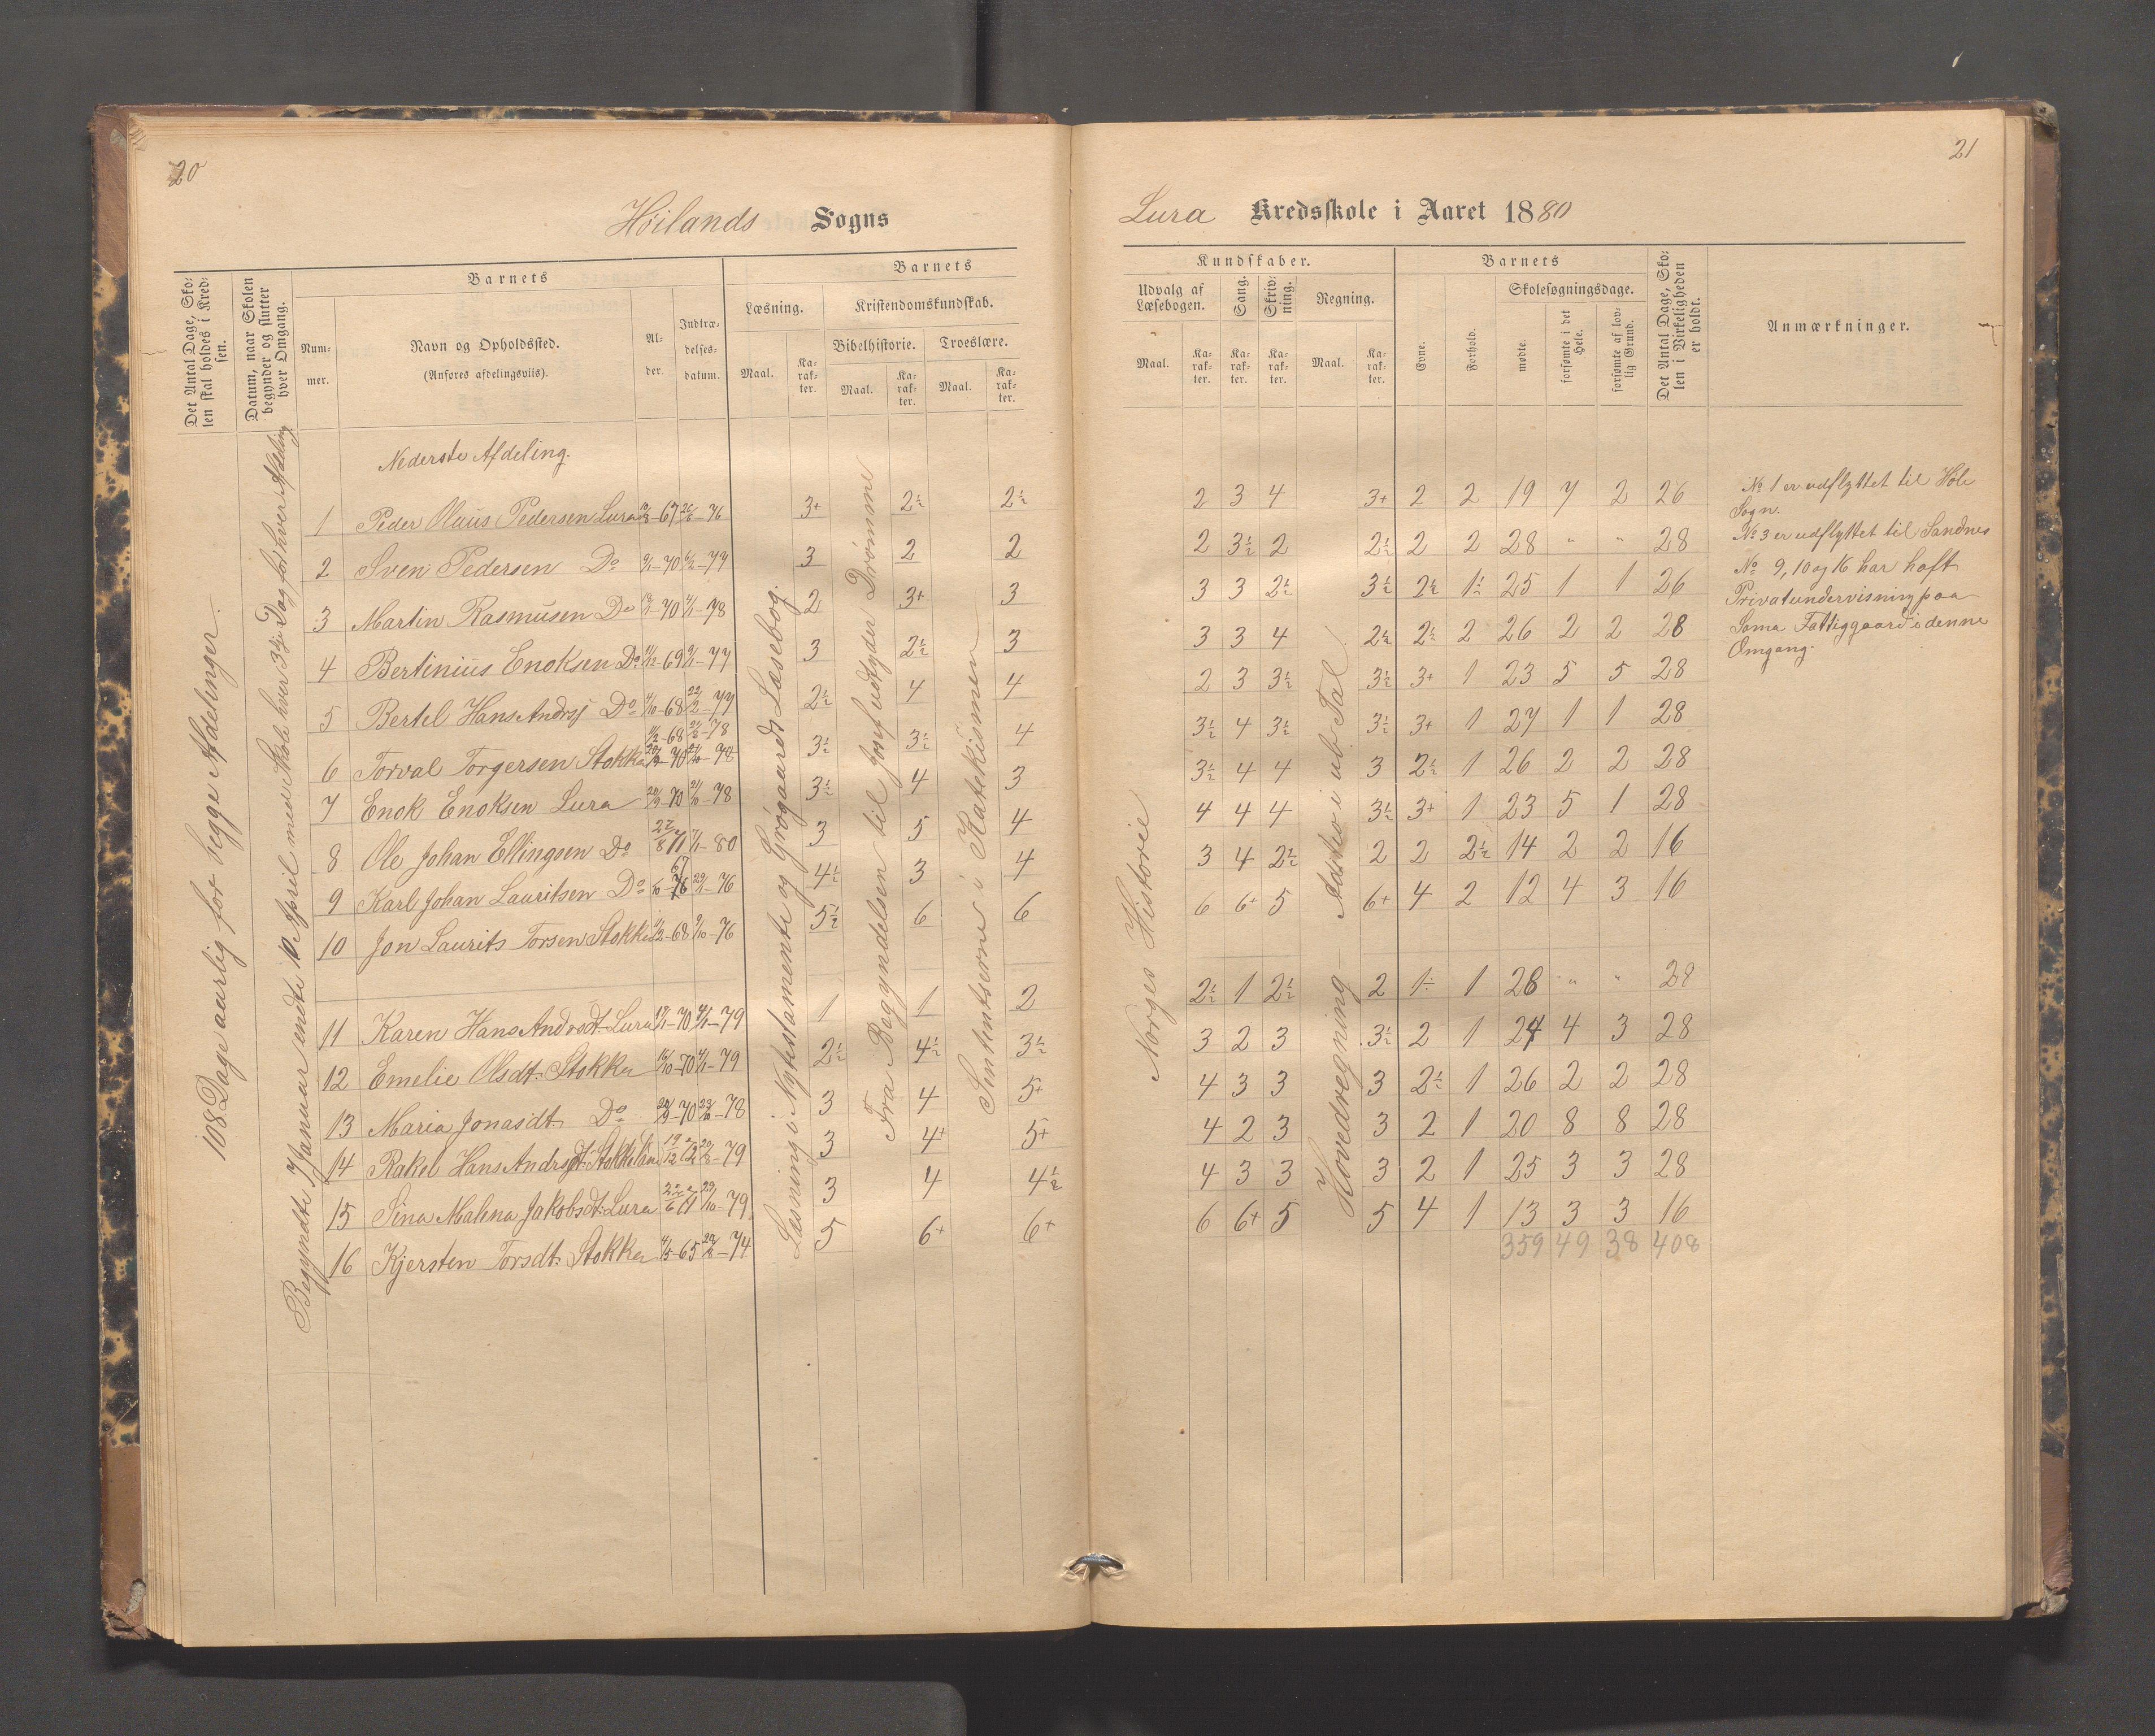 20
Höilands Sogns
Det Antal Dage, Skolen skal holdes i Kredsen.
Datum, naar Skolen begynder og slutter hver Omgang.
Barnets
Nummer.
Navn og Opholdssted.
(Anføres afdelingsviis).
Alder.
Indtrædelsesdatum.
Barnets
Læsning.
Maal.
Karakter.
Kristendomskundskab.
Bibelhistorie.
Maal.
Karakter.
Troeslære.
Maal.
Karakter.
108 Dage aarlig for begge Afdelinger.
Begyndte 7 Januar endte 10 April med Skole hver 3die Dag for hver Afdeling
Læsning i Nytestamente og Grøgaards Læsebog.
Fra Begyndelsen til Josef udtyder Drømme
Sententserne i Katekismen
Nederste Afdeling.
1 Peder Olaus Pedersen Lura 67 76 3+ 2½ 2½
2 Sven Pedersen Do 70 77 3 2 2
3 Martin Rasmusen Do 70 78 2 3+ 3
4 Bertinius Enoksen Do 69 77 3 2½ 3
5 Bertel Hans Andrsj Do 68 77 2½ 4 4
6 Torval Torgersen Stokka 68 78 3½ 3½ 4
7 Enok Enoksen Lura 70 78 3½ 4 3
8 Ole Johan Ellingsen Do 27/8 71 80 3 5 4
9 Karl Johan Lauritsen Do 67 76 4½ 3 4
10 Jon Laurits Torsen Stokka 68 76 5½ 6 6
11 Karen Hans Andrsdt. Lura 70 79 1 1 2
12 Emelie Olsdt. Stokka 70 79 2½ 4½ 3½
13 Maria Jonasdt. Do 70 78 3 4 5+
14 Rakel Hans Andrsdt. 79 3 4+ 5+
15 Sina Malena Jakobsdt. Lura 71 79 3 4 4½
16 Kjersten Torsdt. Stokka 65 74 5 6+ 6+
21
Lura Kredsskole i Aaret 1880
Kundskaber.
Udvalg af Læsebogen.
Maal.
Karakter.
Sang.
Karakter.
Skrivning.
Karakter.
Regning.
Maal.
Karakter.
Barnets
Evne.
Forhold.
Skolesøgningsdage.
mødte.
forsømte i det Hele.
forsømte af lovlig Grund.
Det Antal Dage, Skolen i Virkeligheden er holdt.
Anmærkninger.
Norges Historie
Hovedregning – Additio i ub. Tal!
2 3 4 3+ 2 2 19 7 2 26
2 3½ 2 2½ 2 2 28 " " 28
3 3 2½ 3½ 2½ 1÷ 25 1 1 26
3 3 4 2½ 2½ 2 26 2 2 28
2 3 3½ 3½ 3+ 1 23 5 5 28
3½ 4 3½ 3½ 3+ 1 27 1 1 28
3½ 4 4 3 2½ 1 26 2 2 28
4 4 4 3½ 3+ 1 23 5 1 28
3 4 2½ 2 2 2½ 14 2 2 16
6 6+ 5 6+ 4 2 12 4 3 16
2½ 1 2½ 2 1÷ 1 28 " " 28
3 2 3 3½ 2 1 24 4 3 28
4 3 3 3 2½ 1 26 2 2 28
4 2 3 3 2 1 20 8 8 28
4 3 3 3 2 1 25 3 3 28
6 6+ 5 5 4 1 13 3 3 16
359 49 38 408
No 1 er udflyttet til Höle
Sogn.
No 3 er udflyttet til Sandnes
No 9, 10 og 16 har haft
Privatundervisning paa
Soma Fattiggaard i denne
Omgang.